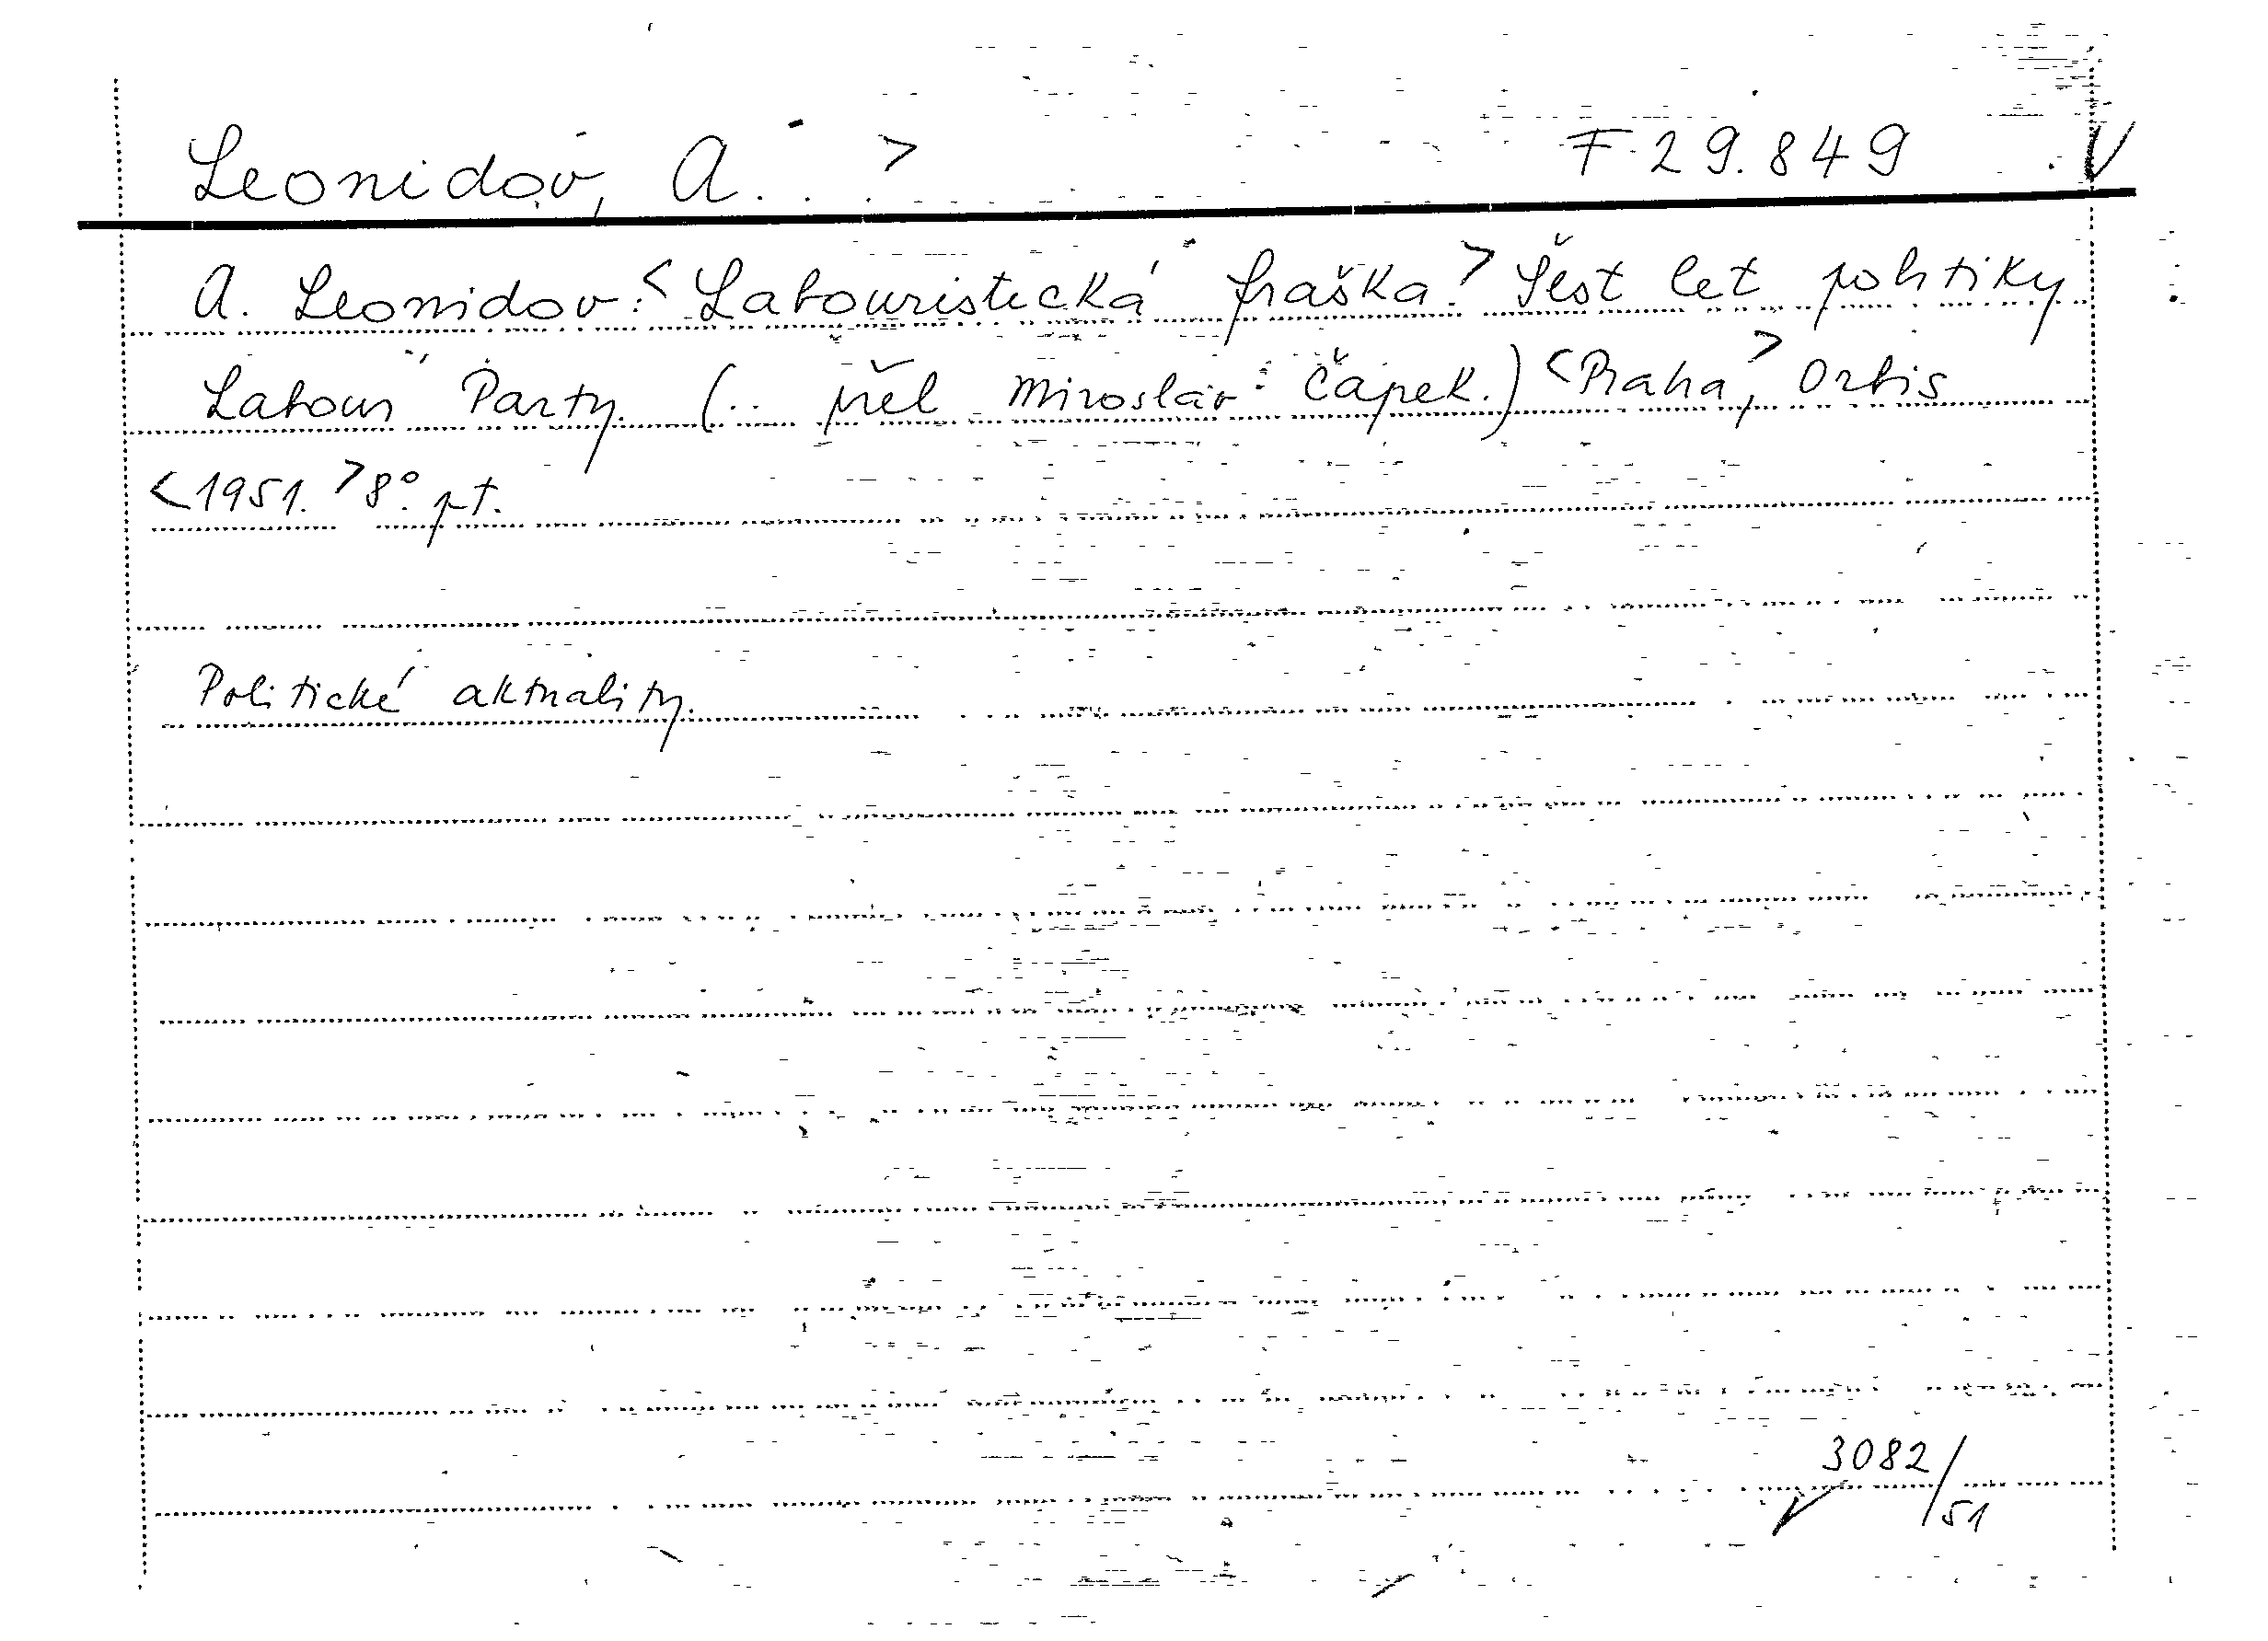 Leonidov, A. > F 29.849 V
A. Leonidov: < Labouristická fraška. > Šest let politiky
Labour Party. (.. přel. Miroslav Čápek.) < Praha, > Orbis
< 1951. > 8°. pt.
Politické aktuality.
3082/51